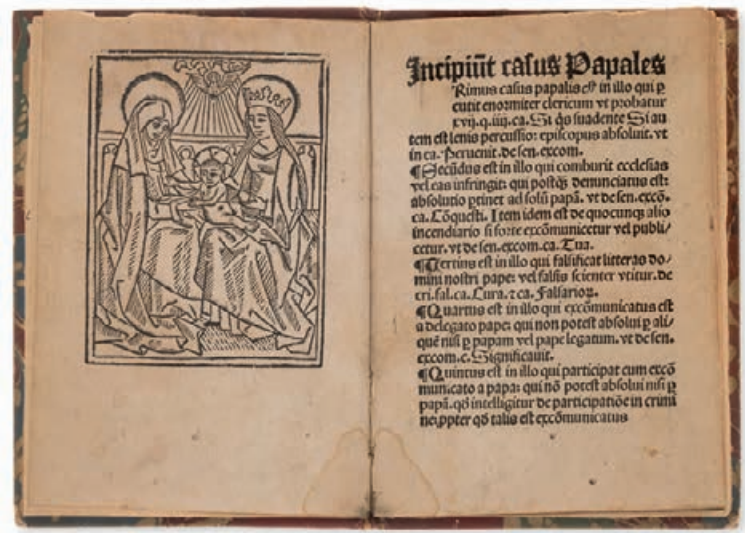 Incipiūt casus Papales
Rimus casus papalis est in illo qui ꝑ
cutit enormiter clericum vt probatur
xvij.q.iiij.ca. Si q̄s suadente Si au
tem est leuis percussio: episcopus absoluit. vt
in ca. Peruenit. de sen. excom.
¶Secūdus est in illo qui comburit ecclesias
vel eas infringit: qui postq̄ȝ denunciatus est:
absolutio ꝑtinet ad solū papā. vt de sen. excō.
ca. Cōquesti. Item idem est de quocunqȝ alio
incendiario si forte excōmunicetur vel publi⸗
cetur. vt de sen. excom. ca. Tua.
¶Tertius est in illo qui falsificat litteras do⸗
mini nostri pape: vel falsis scienter vtitur. de
cri. fal. ca. Dura. ⁊ ca. Falsarioꝝ.
¶Quartus est in illo qui excōmunicatus est
a delegato pape: qui non potest absolui ꝑ ali⸗
quē nisi ꝑ papam vel pape legatum. vt de sen.
excom. c. Significauit.
¶Quintus est in illo qui participat cum excō
municato a papa: qui nō potest absolui nisi ꝑ
papā. qď intelligitur de participatiōe in crimi
ne: ꝓpter qď talis est excōmunicatus